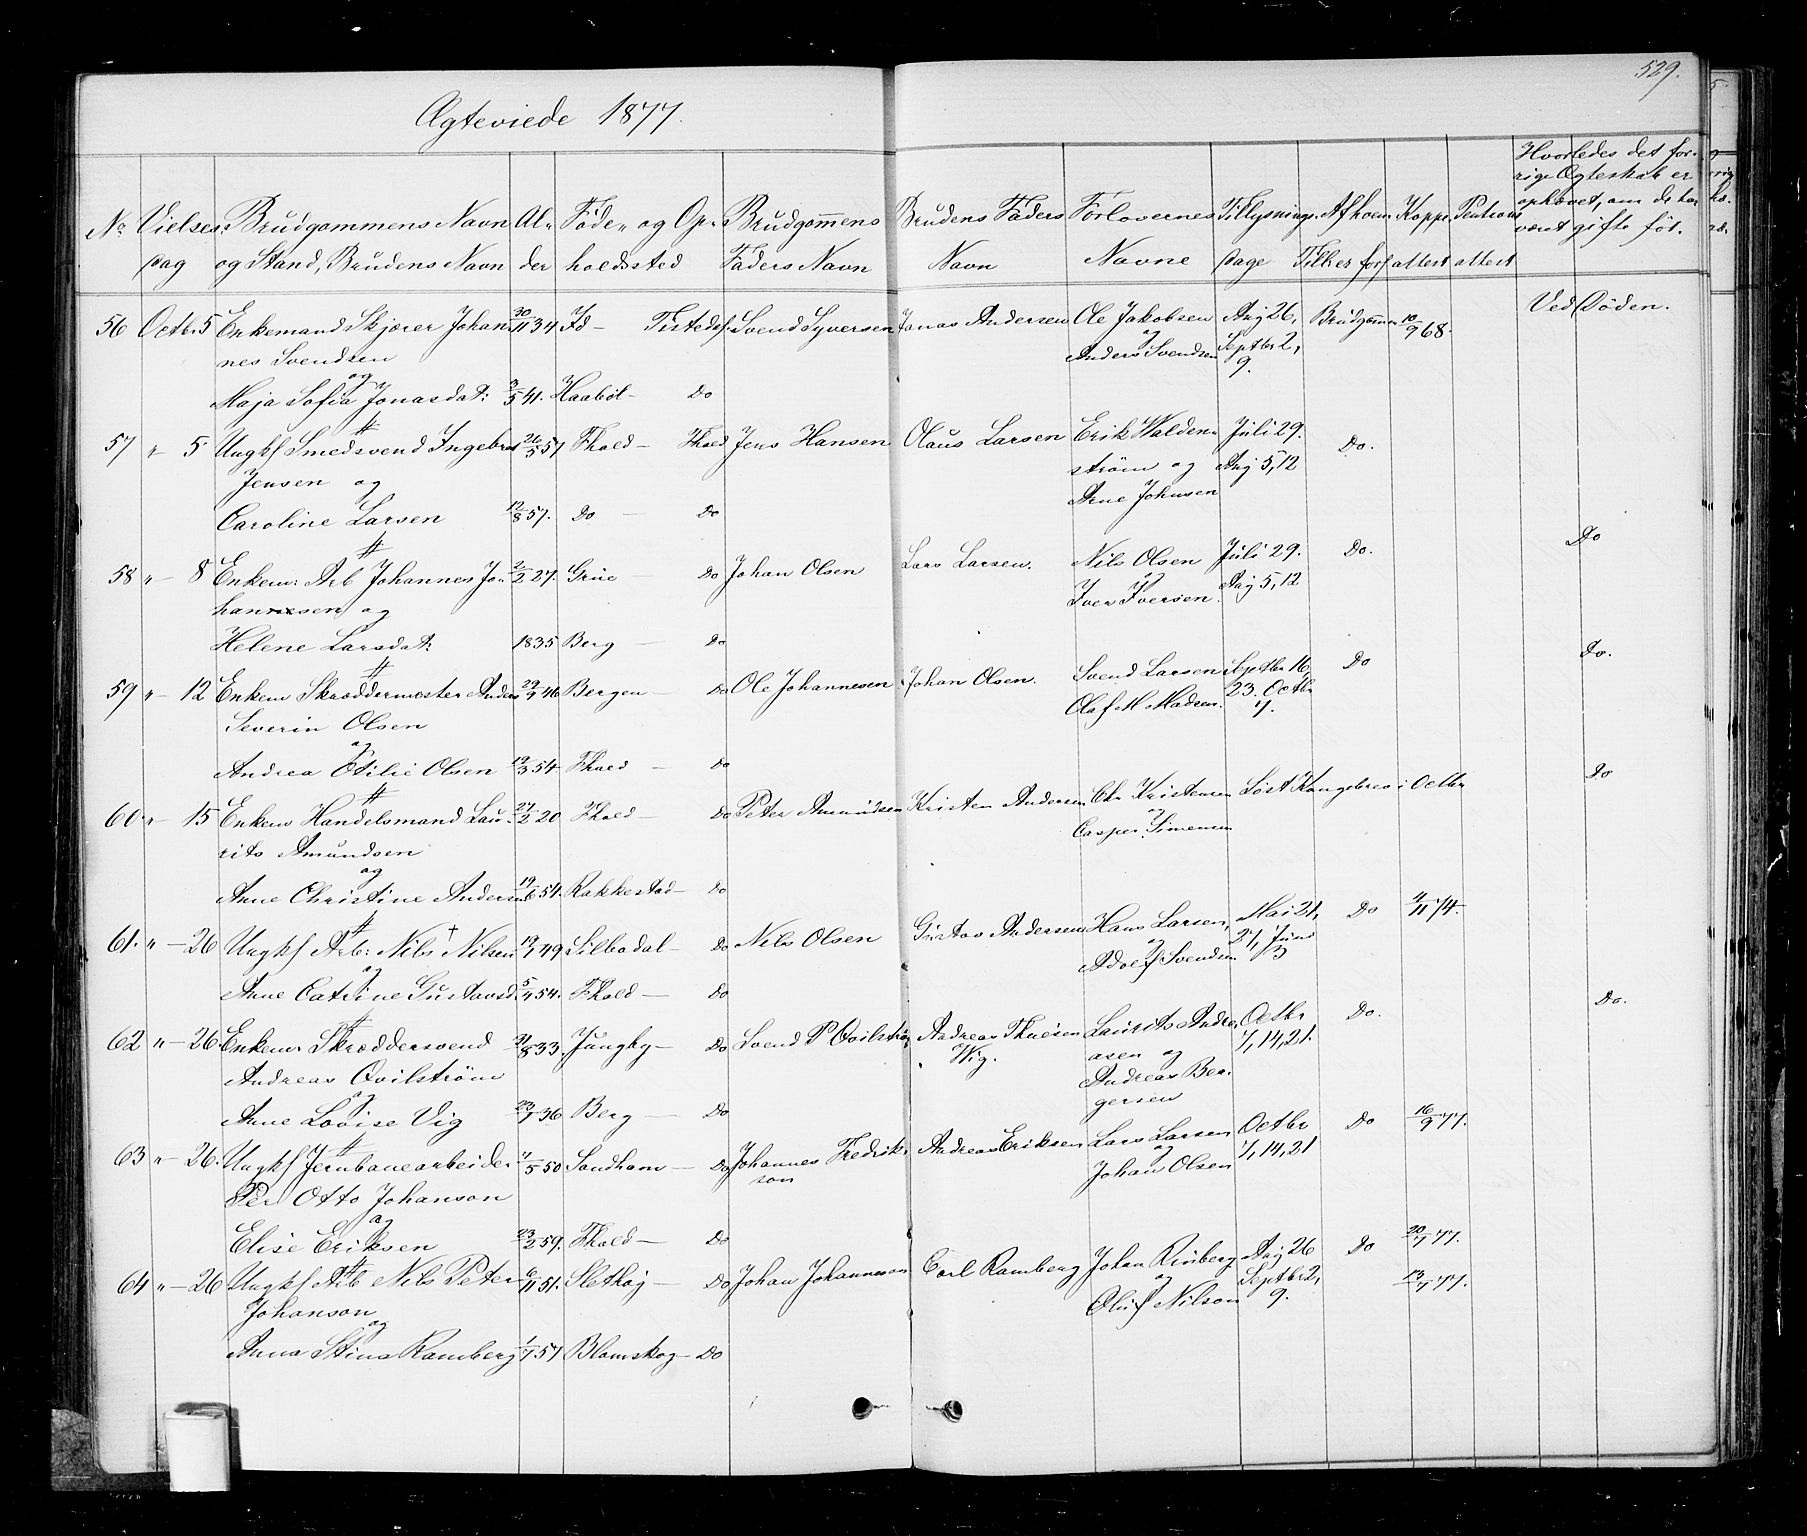 529.
Ægteviede 1877.
No Vielses Brudgommens Navn Al- Føde- og Op- Brudgommens Brudens Faders Forlovernes Tillysnings Afhvem Koppe Hvorledes det for-
dag og Stand, Brudens Navn der holdssted Faders Navn Navn Navne dage attest attest rige Ægteskab er
ophævet, om de har
været gifte før.
56 Octbr 5 Enkemand Skjærer Johan 30/11 34 Id — Tistedf. Svend Syversen Jonas Andersen Ole Jakobsen Aug 26, Brudgommen 10/9 68. Ved Døden.
nes Svendsen og Septbr 2,
og Anders Svendsen 9.
Maja Sofia Jonasdat: 3/5 41. Haabøl — Do
57 " 5 Ungkf Smedsvend Ingebret 26/5 57 Fhald — Fhald Jens Hansen Olaus Larsen Erik Walden- Juli 29. Do.
Jensen og strøm og Aug 5, 12
Caroline Larsen 12/8 57. Do — Do Arne Johnsen
58 " — 8 Enkem: Arb Johannes Jo- 2/2 27. Grue — Do Johan Olsen Lars Larsen. Nils Olsen Juli 29. Do. Do
hannesen og og Aug 5, 12
Iver Iversen.
Helene Larsdat: 1835 Berg — Do
59 " — 12 Enkem Skræddermester Anders 29/9 46 Bergen — Do Ole Johannesen Johan Olsen. Svend Larsen Septbr 16, Do Do.
Severin Olsen Olaf M Madsen. 23. Octbr
og 7.
Andrea Otilie Olsen 19/3 54 Fhald — Do
60 " — 15 Enkem Handelsmand Lau- 27/2 20 Fhald — Do Peter Amundsen Kristen Andersen Chr Kristensen Løst Kongebrev i Octbr Do
rits Amundsen og
og Casper Simensen
Anne Christine Andersen 19/6 54. Rakkestad — Do
61. " — 26 Ungkf Arb: Nils Nilsen 19/1 49 Silbodal — Do Nils Olsen Gustav Andersen Hans Larsen, Mai 21, Do 4/11 74.
og og 27, Juni
Anne Catrine Gustavsd. 5/4 54. Fhald — Do Adolf Svendsen 3
62 " — 26 Enkem Skræddersvend 21/8 33. Jungby — Do Svend P Qvilstrøm Andreas Thuesen Laurits Andre- Octbr Do. Do.
Andreas Qvilstrøm Wig. asen og 7, 14, 21.
og Andreas Ber-
Anne Lovise Vig 23/1 36 Berg — Do gersen
63 " — 26. Ungkf Jernbanearbeider 4/5 50 Sandhem — Do Johannes Fredrik- Andreas Eriksen Lars Larsen Octbr Do 16/9 77.
Per Otto Johanson son og 7, 14, 21
og Johan Olsen
Elise Eriksen 23/2 59. Fhald — Do
64 " — 26 Ungkf Arb Nils Peter 6/11 51. Sletkog — Do Johan Johanneson Carl Ramberg Johan Rinberg Aug 26 Do 20/7 77.
Johanson og Septbr 2, 13/7 77.
og Oluf Nilson 9.
Anna Stina Ramberg 1/7 57 Blomskog — Do